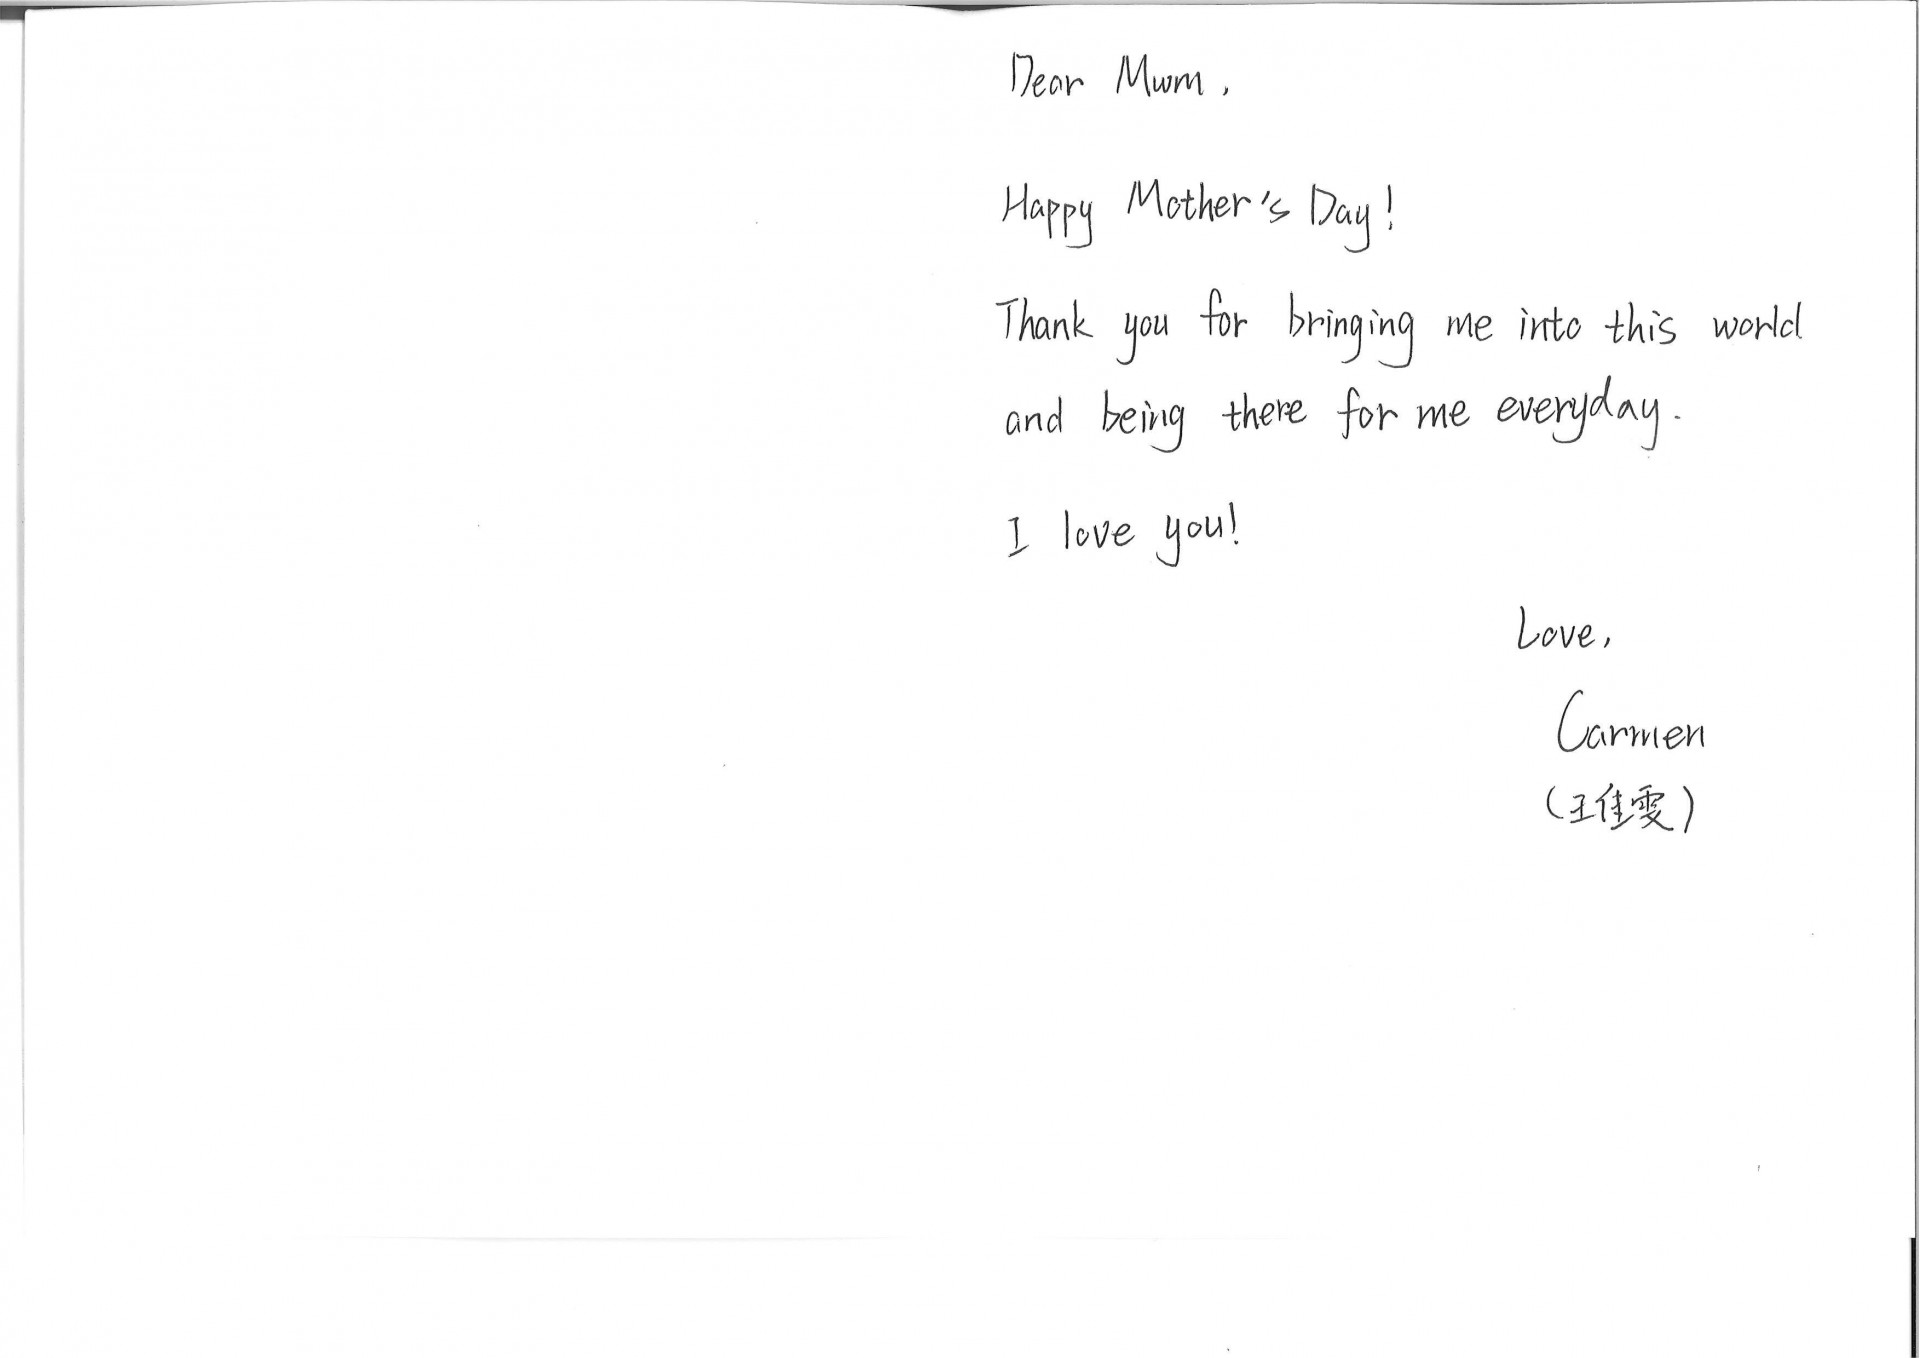 Dear Mum,
Happy Mother's Day!
Thank you for bringing me into this world
and being there for me everyday.
I love you!
Love,
Carmen
(王佳雯)